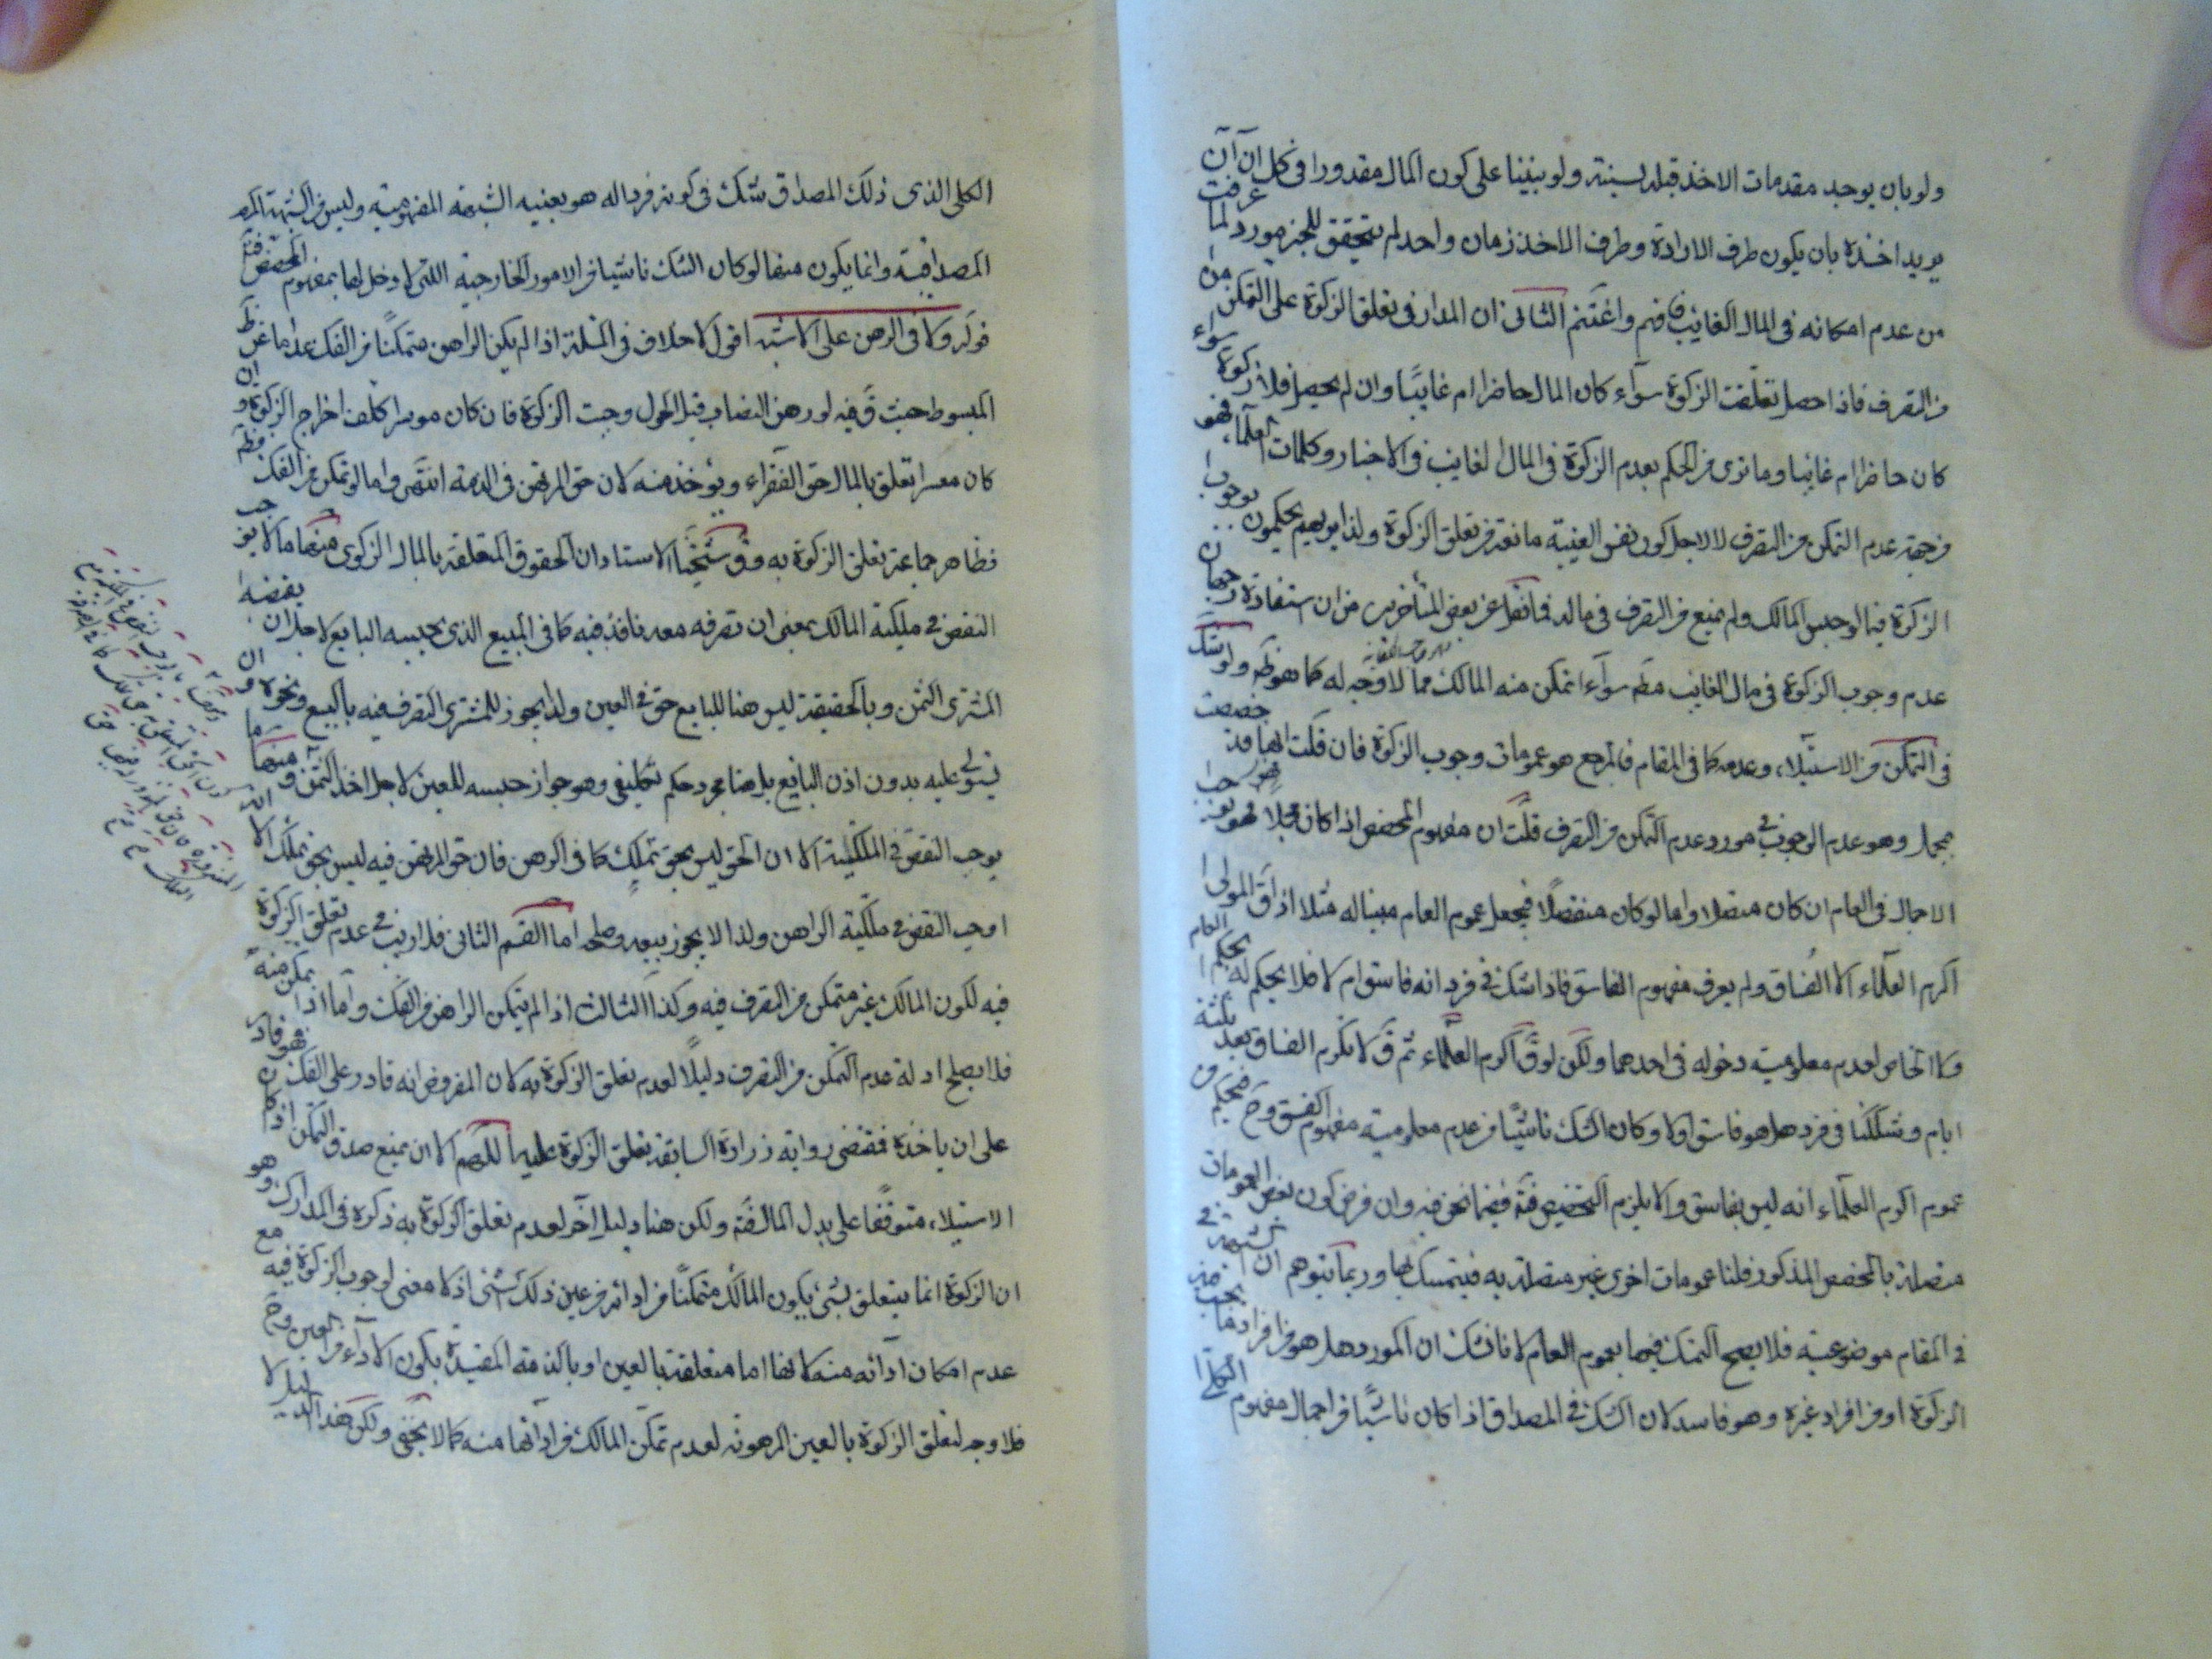 ولو بان يوجد مقدمات الاخذ قبله بسنة ولو بنينا على كون المال مقدورا فى كل ان آن
يريد اخذه بان يكون ظرف الارادة وظرف الاخذ زمان واحد لم يتحقق للخبر مورد لما عرفت
من عدم امكانه فى المال الغايب فافهم واغتنم الثانى ان المدار فى تعلق الزكوة على التمكن من
من التصرف فاذا حصل تعلقت الزكوة سوآء كان المال حاضرا ام غايبًا وان لم يحصل فلا زكوة سواء
كان حاضرا ام غايبا وما نرى من الحكم بعدم الزكوة فى المال الغايب فى الاخبار وكلمات العلمآء فهو
من جهة عدم التمكن من التصرف لا لاجل كون نفس الغيبة مانعة من تعلق الزكوة ولذا يحكمون بوجوب
الزكوة فيما لو حبس المالك ولم يمنع من التصرف فى ماله فما نقل عن بعض المتأخرين من ان ستفادة
عدم وجوب الزكوة فى مال الغايب مط سوآء تمكن منه المالك مما لا وجه له كما هو ظ ولو شك
فى التمكن من الاستيلاء وعدمه كما فى المقام فالمرجع هو عمومات وجوب الزكوة فان قلت انها قد خصصت
بمجمل وهو عدم الوجوب فى مورد عدم التمكن من التصرف قلت ان مفهوم المخصص اذا كان مجملا فهو يوجب
الاجمال فى العام ان كان متصلا واما لو كان منفصلًا فيجعل عموم العام مبينا له مثلا اذا ق المولى
اكرم العلمآء الا الفساق ولم يعرف مفهوم الفاسق فاذا شك فى فرد انه فاسق ام لا فلا يحكم له بحكم العام
ولا الخاص لعدم معلومية دخوله فى احدهما ولكن لو ق اكرم العلمآء ثم ق لا تكرم الفساق بعد ثلثة
ايام وشككنا فى فرد هل هو فاسق اولا وكان الشك ناشئًا من عدم معلومية مفهوم الفسق وح فيحكم
عموم اكرم العلمآء انه ليس بفاسق والا يلزم التخصيص فيه فيما نحن فيه وان فرض كون بعض العمومات
متصلة بالمخصص المذكور فلنا عمومات اخرى غير متصلة به فيتمسك بها وربما يتوهم ان الشبهة
فى المقام موضوعية فلا يصح التمسك فيها بعموم العام لانا نشك ان المورد هل هو من افراد ما يجب فيه
الزكوة او من افراد غيره وهو فاسد لان الشك فى المصداق اذا كان ناشئًا من اجمال مفهوم الكلى
الكلى الذى ذلك المصداق شك فى كونه فردا له هو بعينه الشبهة المفهومية وليس من الشبهة
المصداقية وانما يكون منها لو كان الشك ناشيا من الامور الخارجية اللتى لا دخل لها بمفهوم المخصص
قوله ولا فى الرهن على الاشبه اقول لا خلاف فى المسئلة اذا لم يكن الراهن متمكنًا من الفك عدا ما عن
المبسوط حيث ق فيه لو رهن النصاب قبل الحول وجبت الزكوة فان كان موسرا كلف اخراج الزكوة وان
كان معسرا تعلق بالمال حق الفقراء ويؤخذ منه لان حق المرتهن فى الذمة انتهى واما لو تمكن من الفك
فظاهر جماعة تعلق الزكوة به وق شيخنا الاستاد ان الحقوق المتعلقة بالمال الزكوى منها ما لا يوجب
النقض فى ملكية المالك بمعنى ان تصرفه معه نافذ فيه كما فى المبيع الذى يحبسه البايع لاجل ان يقبضه
المشترى الثمن وبالحقيقة ليس هنا للبايع حق فى العين ولذا يجوز للمشترى التصرف فيه بالبيع ونحوه
يستولى عليه بدون اذن البايع بل هنا مجرد حكم تكليفى وهو جواز حبسه للعين لاجل اخذ الثمن ومنها ما
يوجب النقص فى الملكية الا ان الحق ليس بحق تملك كما فى الرهن فان حق المرتهن فيه ليس بحق تملك الا انه
اوجب النقص فى ملكية الراهن ولذا لا يجوز بيعه اما القسم الثانى فلا ريب فى عدم تعلق الزكوة
فيه لكون المالك غير متمكن من التصرف فيه وكذا الثالث اذا لم يتمكن الراهن من الفك واما اذا تمكن منه
فلا يصلح ادلة عدم التمكن من التصرف دليلًا لعدم تعلق الزكوة به لان المفروض انه قادر على الفك فهو قادر
على ان ياخذه فمقتضى رواية زرارة السابقة تعلق الزكوة عليه اللهم الا ان يمنع صدق التمكن اذا كان
الاستيلاء متوقفًا على بدل المال ولكن هنا دليل آخر لعدم تعلق الزكوة به ذكره فى المدارك وهو
ان الزكوة انما يتعلق بشئ يكون المالك متمكنًا من ادائه من عين ذلك الشئ اذ لا معنى لوجوب الزكوة فيه مع
عدم امكان ادآئه منه لانها اما متعلقة بالعين او بالذمة المقيدة بكون الادآء من العين وح
فلا وجه لتعلق الزكوة بالعين المرهونه لعدم تمكن المالك من ادآئها منه كما لا يخفى ولكن هذا الدليل لا